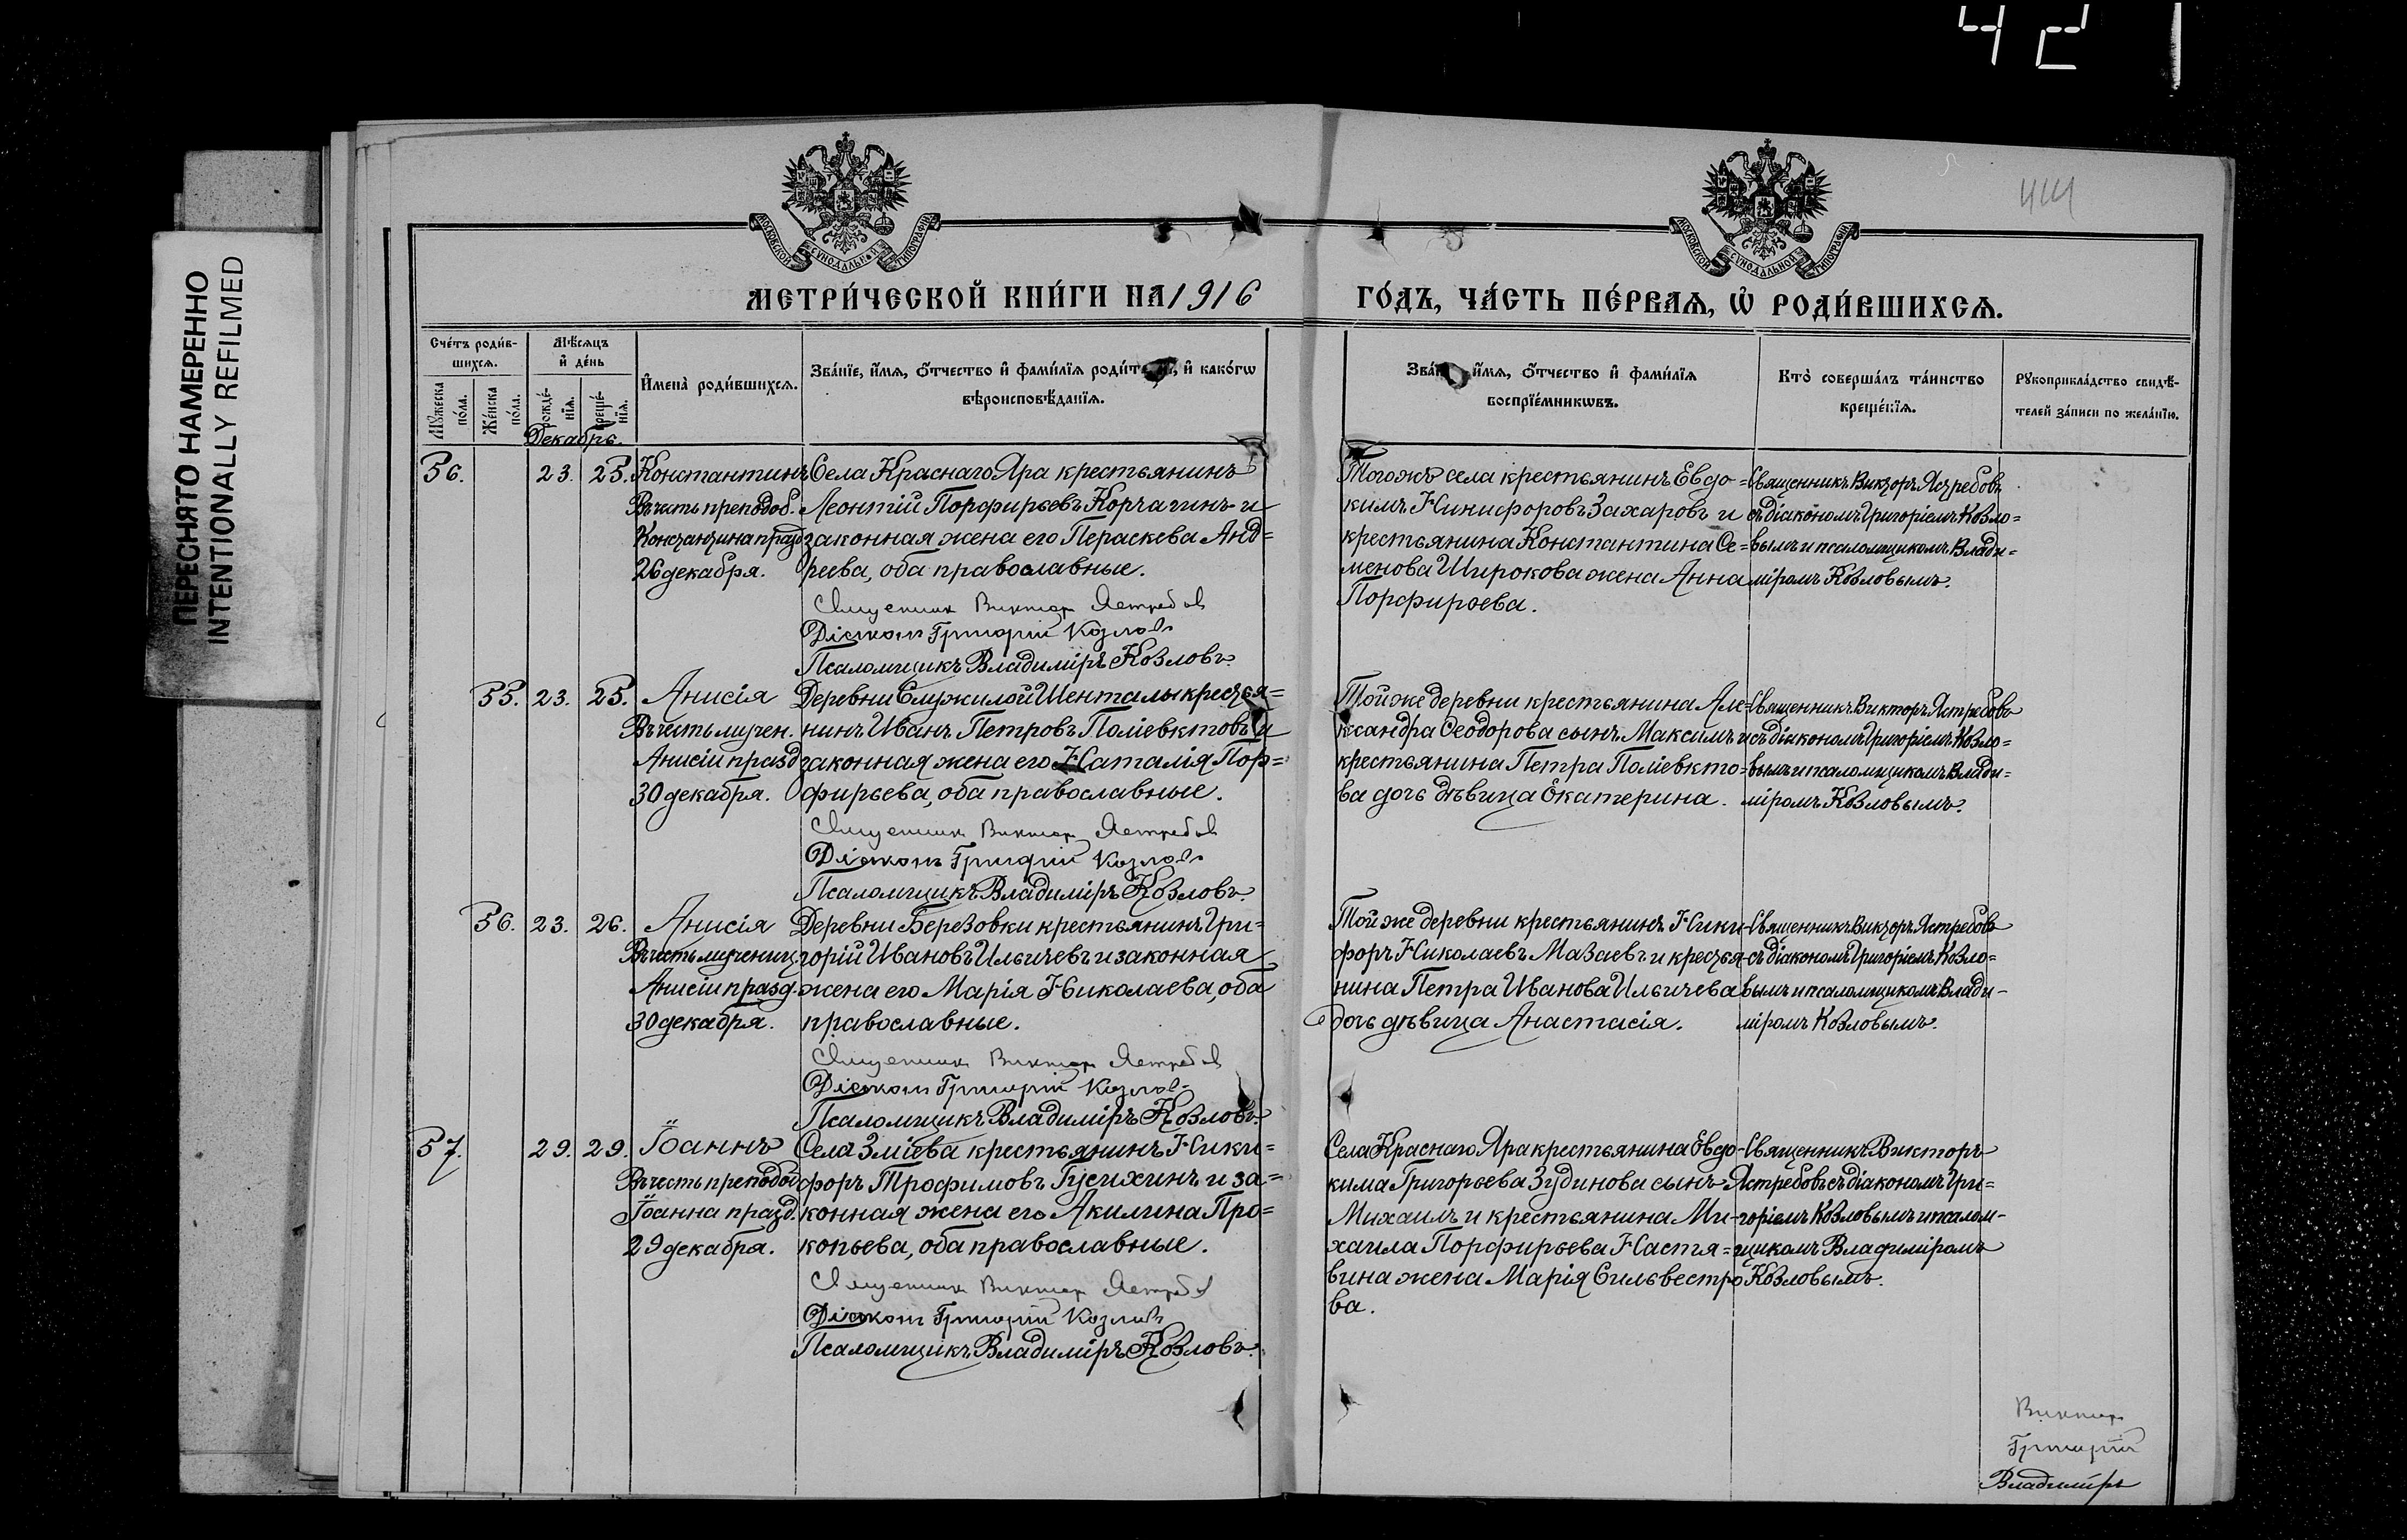 42
ПЕРЕСНЯТО НАМЕРЕННО
INTENTIONALLY REFILMED
МОСКОВСКОЙ СѴНОДАЛЬНОЙ ТИПОГРАФІИ
МОСКОВСКОЙ СѴНОДАЛЬНОЙ ТИПОГРАФІИ
МЕТРИ́ЧЕСКОЙ КНИ́ГИ НА 1916 ГО́ДЪ, ЧА́СТЬ ПЕ́РВАѦ, Ѡ҆ РОДИ́ВШИХСѦ.
Сче́тъ роди́в-
шихсѧ.
Мꙋжеска по́ла.
Же́нска по́ла.
Мѣ́сѧцъ
и҆ де́нь
рожде́-
нїѧ.
креще́-
нїѧ.
И҆мена̀ роди́вшихсѧ.
Зва́нїе, и҆́мѧ, ѻ҆́тчество и҆ фами́лїѧ роди́телей, и҆ како́гѡ
вѣроисповѣ́данїѧ.
Зва́нїе, и҆́мѧ, ѻ҆́тчество и҆ фами́лїѧ
воспрїе́мникѡвъ.
Кто̀ соверша́лъ та́инство
креще́нїѧ.
Рꙋкоприкла́дство свидѣ́-
телей за́писи по жела́нїю.
Декабрь.
56. 23. 25. Константинъ
Въ честь преподоб.
Константина празд
26 декабря.
Села Краснаго Яра крестьянинъ
Леонтій Порфирьевъ Корчагинъ и
законная жена его Пераскева Анд=
реева, оба православные.
Священник Виктор Ястребов
Діакон Григорій Козловъ
Псаломщикъ Владиміръ Козловъ.
Того жъ села крестьянинъ Евдо=
кимъ Никифоровъ Захаровъ и
крестьянина Константина Се=
менова Широкова жена Анна
Порфирьева.
Священникъ Викторъ Ястребовъ
съ діакономъ Григоріемъ Козло=
вымъ и псаломщикомъ Влади=
міромъ Козловымъ.
55. 23. 25. Анисія
Въ честь мучен.
Анисіи празд
30 декабря.
Деревни Служилой Шенталы крестья=
нинъ Иванъ Петровъ Поліевктовъ и
законная жена его Наталія Пор=
фирьева, оба православные.
Священник Виктор Ястребов
Діакон Григорій Козловъ
Псаломщикъ Владиміръ Козловъ.
Той же деревни крестьянина Але=
ксандра Ѳеодорова сынъ Максимъ и
крестьянина Петра Поліевкто=
ва дочь дѣвица Екатерина.
Священникъ Викторъ Ястребовъ
съ діакономъ Григоріемъ Козло=
вымъ и псаломщикомъ Влади=
міромъ Козловымъ.
56. 23. 26. Анисія
Въ честь мучениц
Анисіи празд.
30 декабря.
Деревни Березовки крестьянинъ Гри=
горій Ивановъ Ильичевъ и законная
жена его Марія Николаева, оба
православные.
Священник Виктор Ястребов
Діакон Григорій Козловъ
Псаломщикъ Владиміръ Козловъ.
Той же деревни крестьянинъ Ники-
форъ Николаевъ Мазаевъ и крестья-
нина Петра Иванова Ильичева
дочь дѣвица Анастасія.
Священникъ Викторъ Ястребовъ
съ діакономъ Григоріемъ Козло=
вымъ и псаломщикомъ Влади-
міромъ Козловымъ.
57. 29. 29. Іоаннъ
Въ честь преподоб
Іоанна празд.
29 декабря.
Села Зміева крестьянинъ Ники=
форъ Трофимовъ Гусихинъ и за=
конная жена его Акилина Про=
копьева, оба православные.
Священник Виктор Ястребов
Діакон Григорій Козловъ
Псаломщикъ Владиміръ Козловъ.
Села Краснаго Яра крестьянина Евдо-
кима Григорьева Зудинова сынъ
Михаилъ и крестьянина Ми-
хаила Порфирьева Настя=
вина жена Марія Сильвестро
ва.
Священникъ Викторъ
Ястребовъ съ діакономъ Гри=
горіемъ Козловымъ и псалом-
щикомъ Владиміромъ
Козловымъ.
Виктор
Григорій
Владиміръ